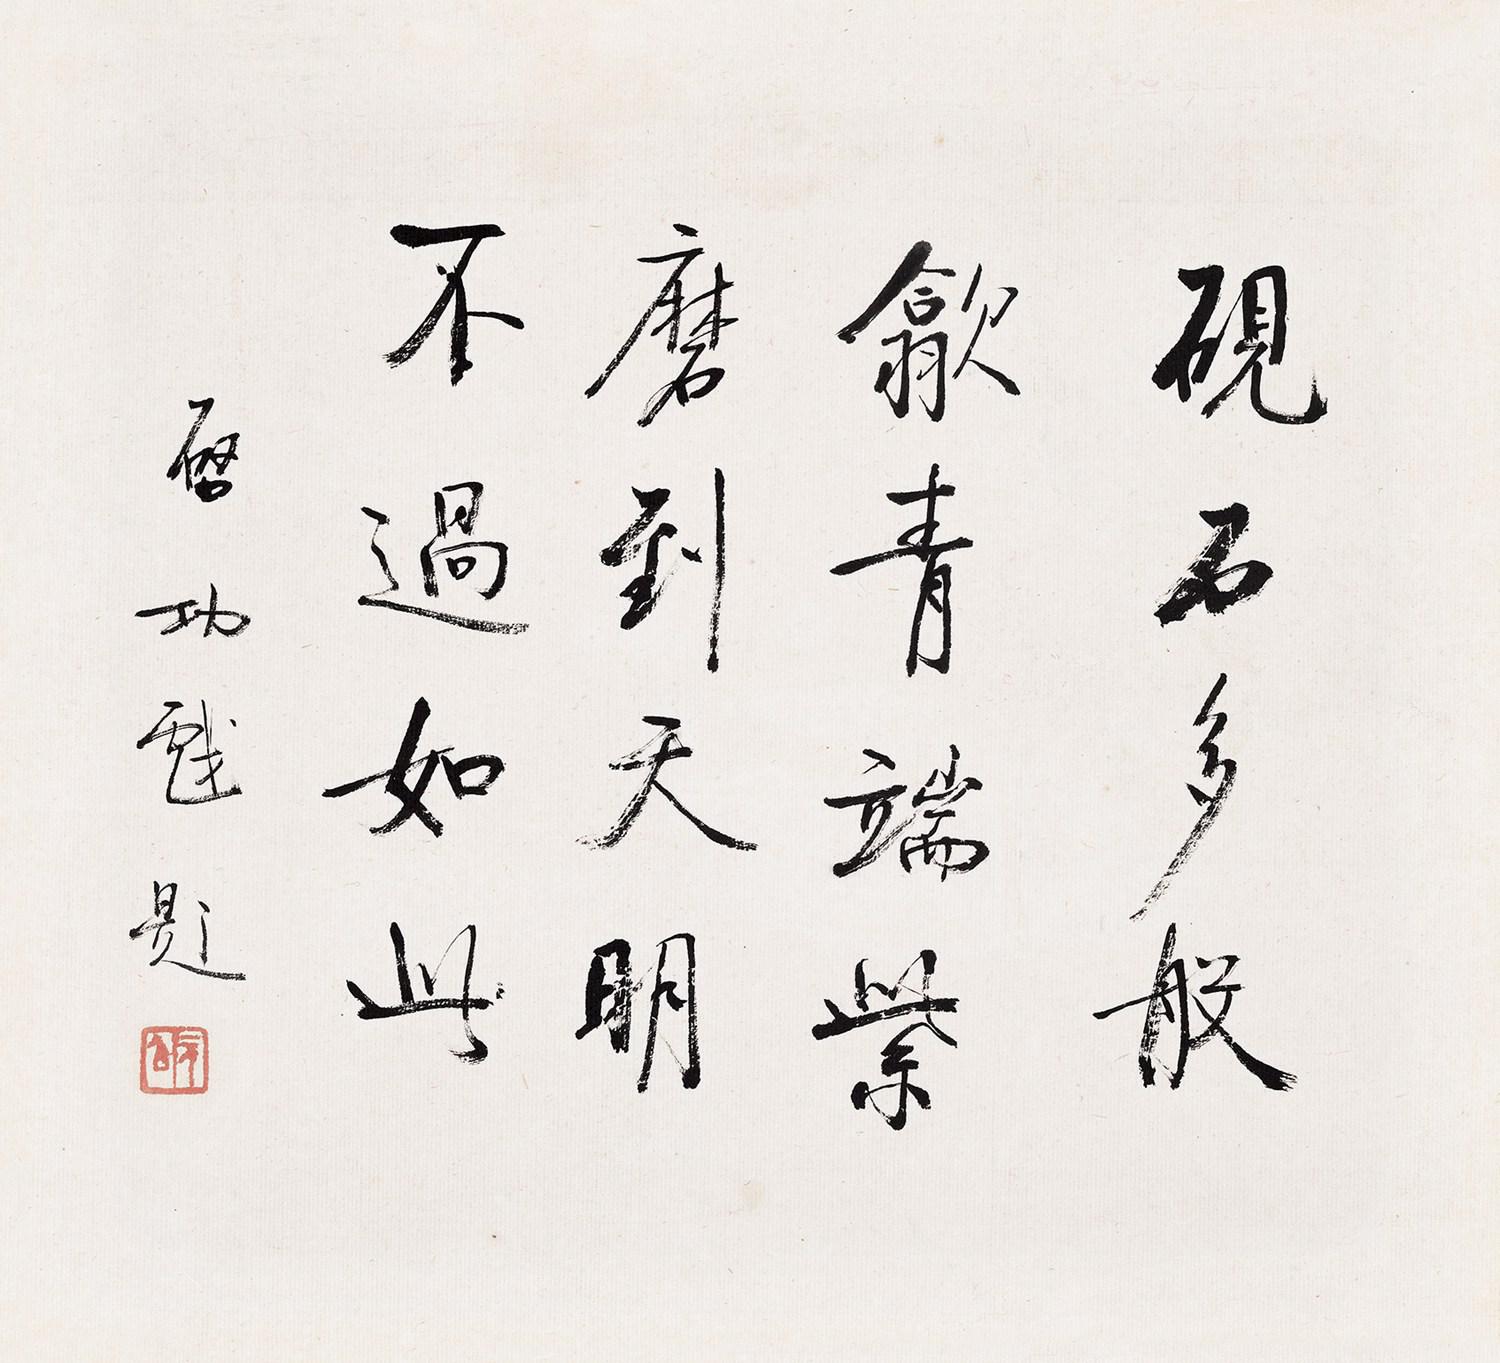 硯石多般
歙青端紫
磨到天明
不過如此
啓功戲題